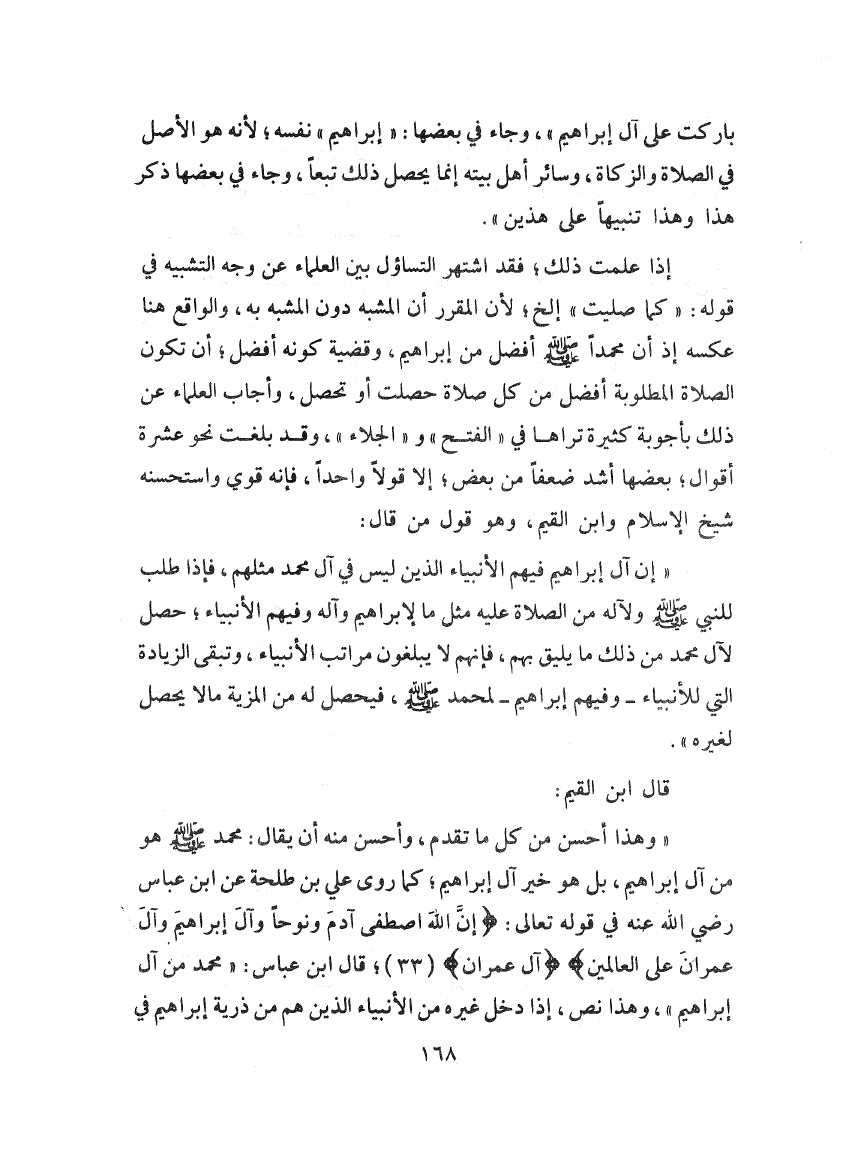 باركت على آل إبراهيم » ، وجاء في بعضها : « إبراهيم » نفسه ؛ لأنه هو الأصل
في الصلاة والزكاة ، وسائر أهل بيته إنما يحصل ذلك تبعاً ، وجاء في بعضها ذكر
هذا وهذا تنبيهاً على هذين » .
إذا علمت ذلك ؛ فقد اشتهر التساؤل بين العلماء عن وجه التشبيه في
قوله : « كما صليت » إلخ ؛ لأن المقرر أن المشبه دون المشبه به ، والواقع هنا
عكسه إذ أن محمداً ﷺ أفضل من إبراهيم ، وقضية كونه أفضل ؛ أن تكون
الصلاة المطلوبة أفضل من كل صلاة حصلت أو تحصل ، وأجاب العلماء عن
ذلك بأجوبة كثيرة تراها في « الفتح » و « الجلاء » ، وقد بلغت نحو عشرة
أقوال ؛ بعضها أشد ضعفاً من بعض ؛ إلا قولاً واحداً ، فإنه قوي واستحسنه
شيخ الإسلام وابن القيم ، وهو قول من قال :
« إن آل إبراهيم فيهم الأنبياء الذين ليس في آل محمد مثلهم ، فإذا طلب
للنبي ﷺ ولآله من الصلاة عليه مثل ما لإبراهيم وآله وفيهم الأنبياء ؛ حصل
لآل محمد من ذلك ما يليق بهم ، فإنهم لا يبلغون مراتب الأنبياء ، وتبقى الزيادة
التي للأنبياء ـ وفيهم إبراهيم ـ لمحمد ﷺ ، فيحصل له من المزية مالا يحصل
لغيره » .
قال ابن القيم :
« وهذا أحسن من كل ما تقدم ، وأحسن منه أن يقال : محمد ﷺ هو
من آل إبراهيم ، بل هو خير آل إبراهيم ؛ كما روى علي بن طلحة عن ابن عباس
رضي الله عنه في قوله تعالى : ﴿ إنَّ اللهَ اصطفى آدمَ ونوحاً وآلَ إبراهيمَ وآلَ
عمرانَ على العالمين ﴾ ﴿ آل عمران ﴾ ( ٣٣ ) ؛ قال ابن عباس : « محمد من آل
إبراهيم » ، وهذا نص ، إذا دخل غيره من الأنبياء الذين هم من ذرية إبراهيم في
١٦٨